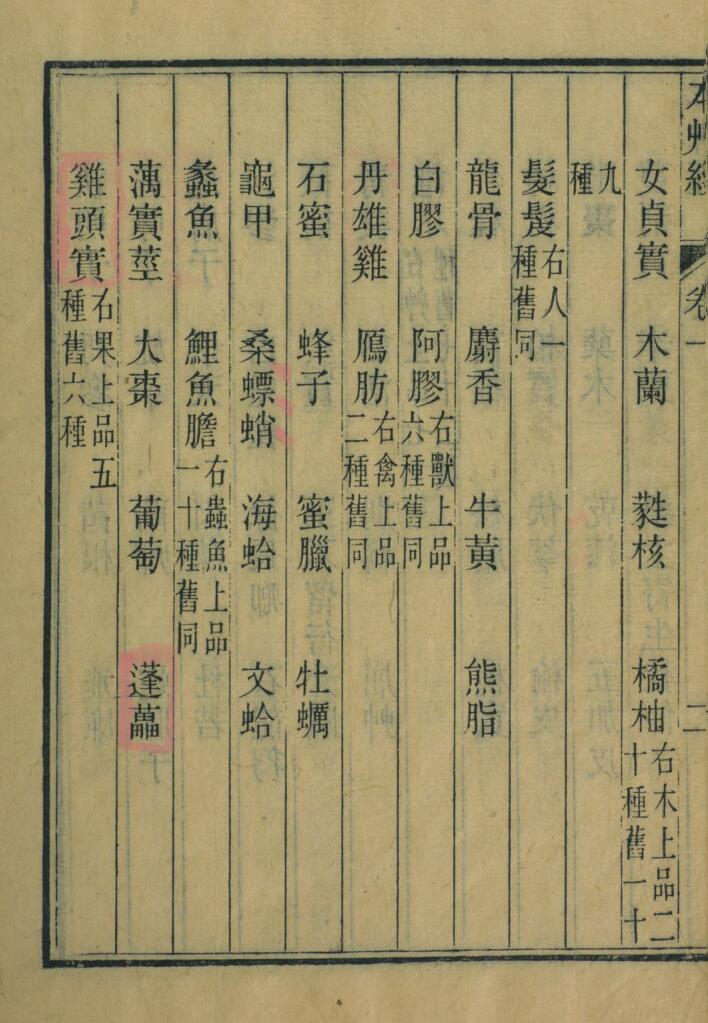 本艸經 卷一 二
女貞實 木蘭 蕤核 橘柚 右木上品二十種舊一十
九種
髮髲 右人一種舊同
龍骨 麝香 牛黃 熊脂
白膠 阿膠 右獸上品六種舊同
丹雄雞 鴈肪 右禽上品二種舊同
石蜜 蜂子 蜜臘 牡蠣
龜甲 桑螵蛸 海蛤 文蛤
蠡魚 鯉魚膽 右蟲魚上品一十種舊同
藕實莖 大棗 葡萄 蓬蘽
雞頭實 右果上品五種舊六種